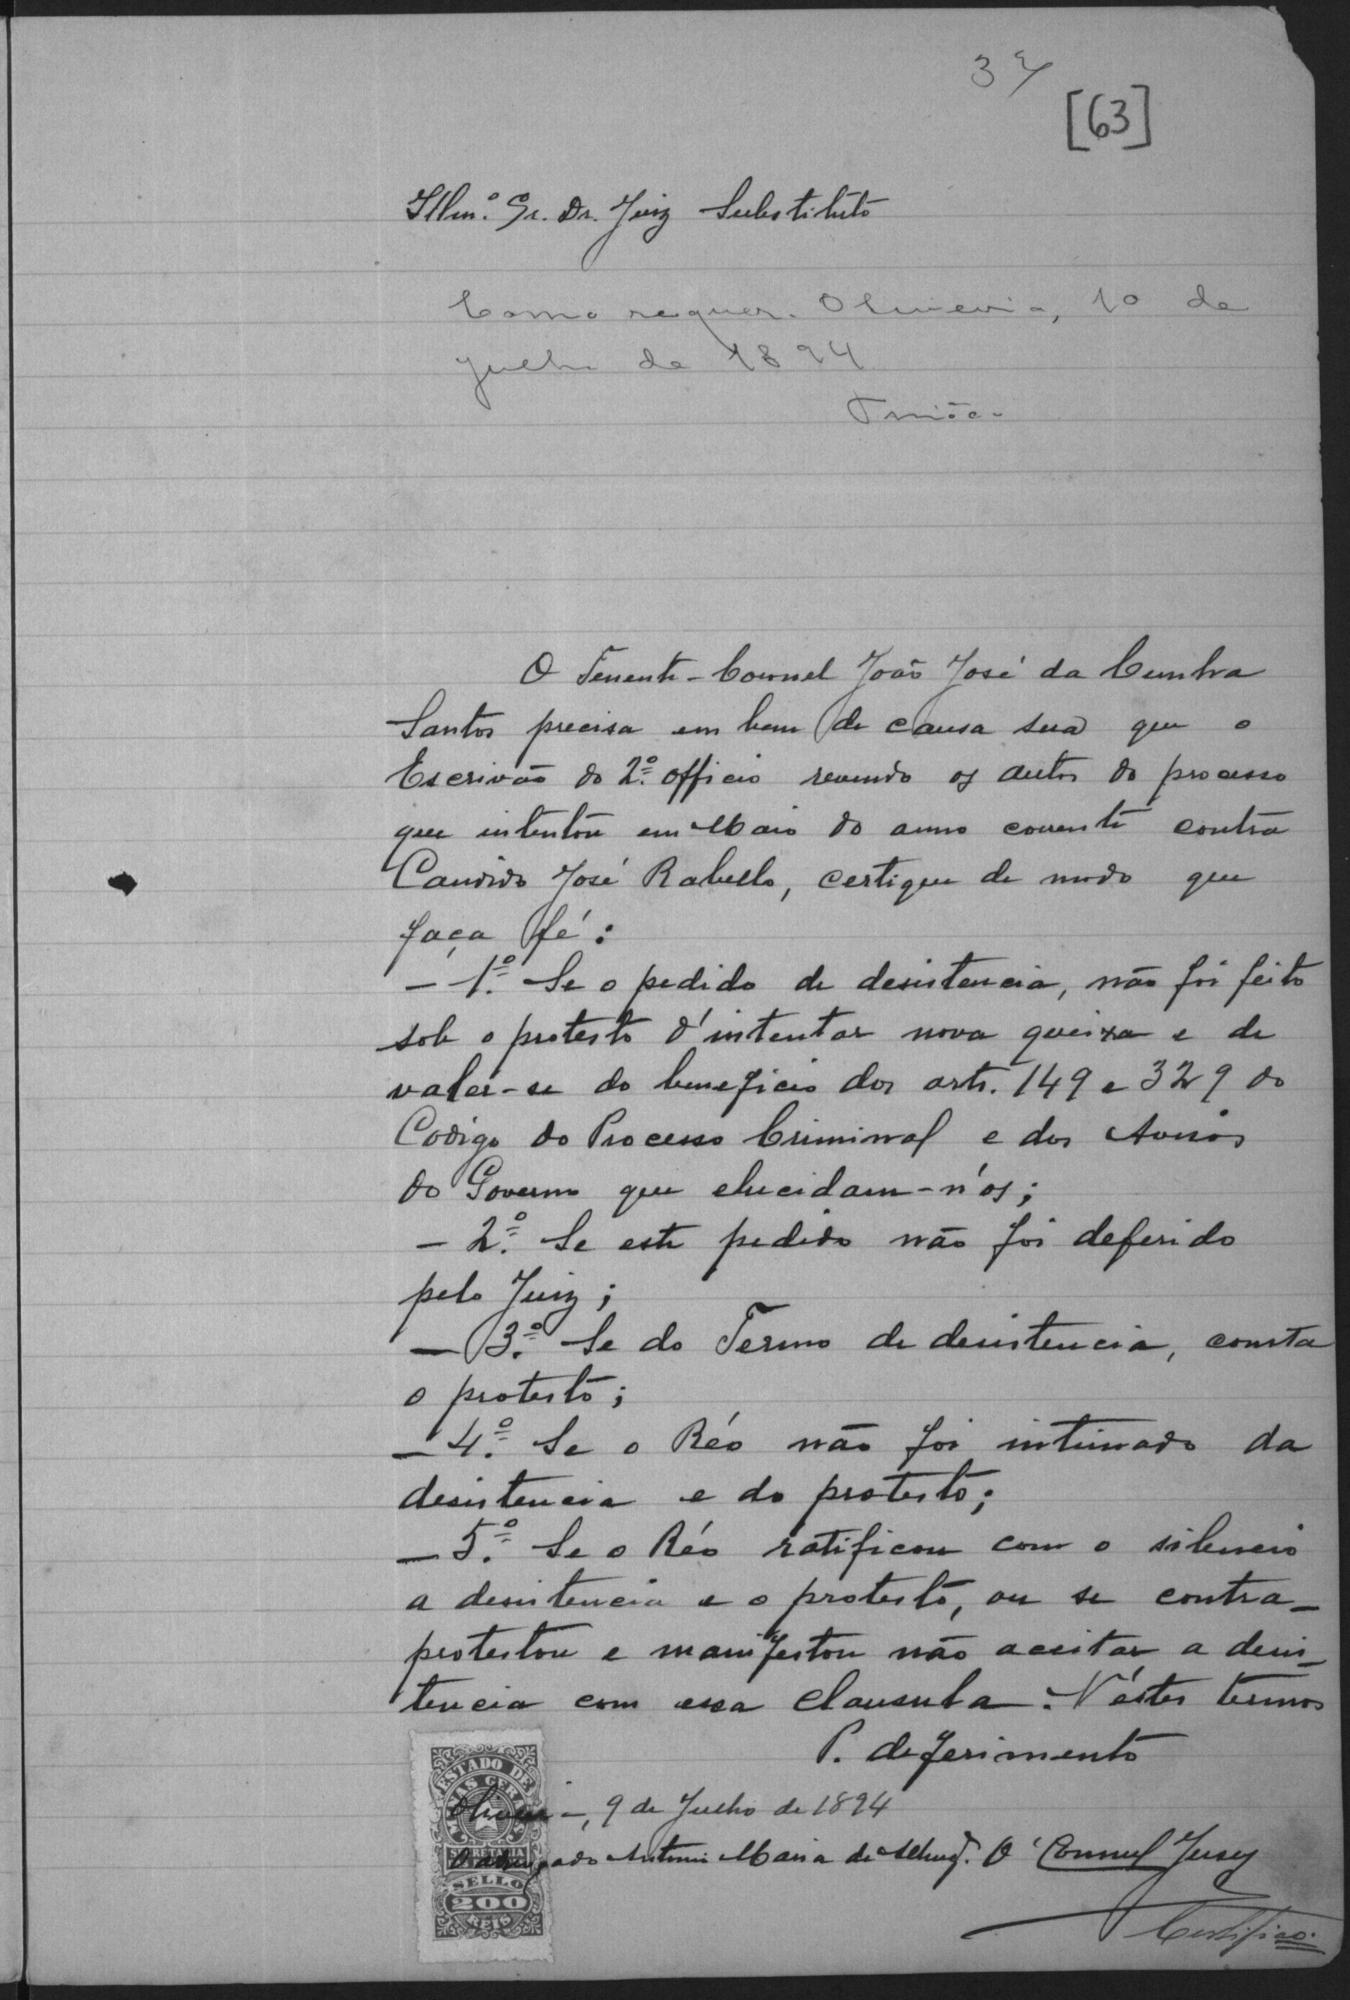 37
[63]
Illmº. Sr. Dr. Juiz Substituto
Como requer. Oliveira, 10 de
Julho de 1894
O Tenente-Coronel João José da Cunha
Santos precisa em bem de causa sua que o
Escrivão do 2º. officio revendo os autos do processo
que intentou em Maio do anno corrente contra
Candido José Rabello, certique de modo que
faça fé:
– 1º. Se o pedido de desistencia, não foi feito
sob o protesto d'intentar nova queixa e de
valer-se do beneficio dos arts. 149 e 329 do
Codigo do Processo Criminal e dos Avisos
do Governo que elucidam-n'os;
– 2º. Se este pedido não foi deferido
pelo Juiz;
– 3º. Se do Termo de desistencia, consta
o protesto;
– 4º. Se o Réo não foi intimado da
desistencia e do protesto;
– 5º. Se o Réo ratificou com o silencio
a desistencia e o protesto, ou se contra-
protestou e manifestou não aceitar a desis-
tencia com essa clausula. N'éstes termos
P. deferimento
Oliveira, 9 de Julho de 1894
O advogado Antonio Maria de O'Connel Jersey
Certifico.
ESTADO DE
MINAS GERAES
SECRETARIA
SELLO
200
REIS